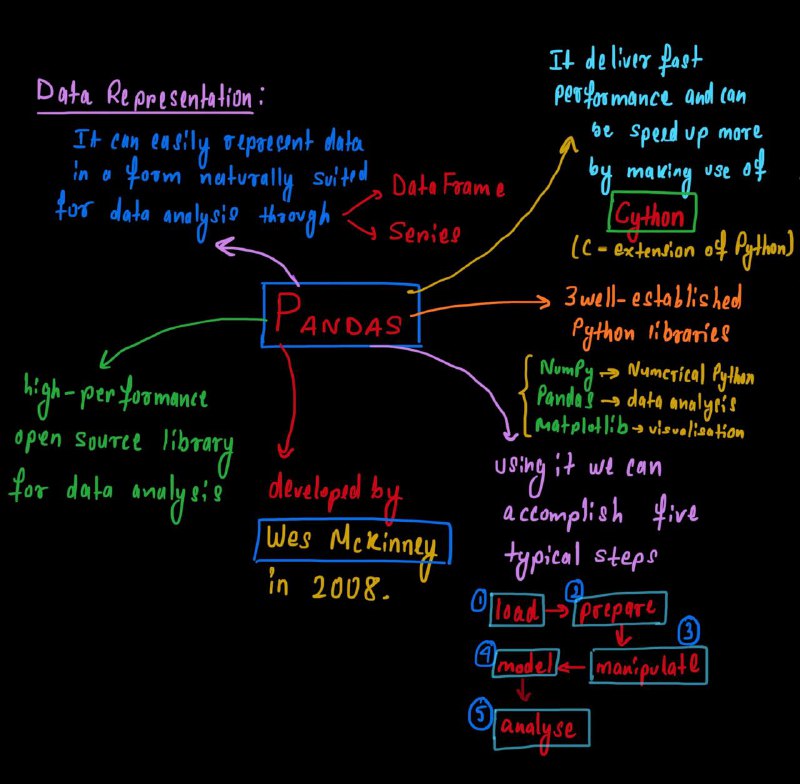 Data Representation:
It can easily represent data
in a form naturally suited
for data analysis through
DataFrame
Series
It deliver fast
performance and can
be speed up more
by making use of
Cython
(C-extension of Python)
PANDAS
3 well-established
Python libraries
NumPy → Numerical Python
Pandas → data analysis
matplotlib → visualisation
high-performance
open source library
for data analysis
developed by
Wes McKinney
in 2008.
using it we can
accomplish five
typical steps
1 load → 2 prepare
3 manipulate
4 model
5 analyse